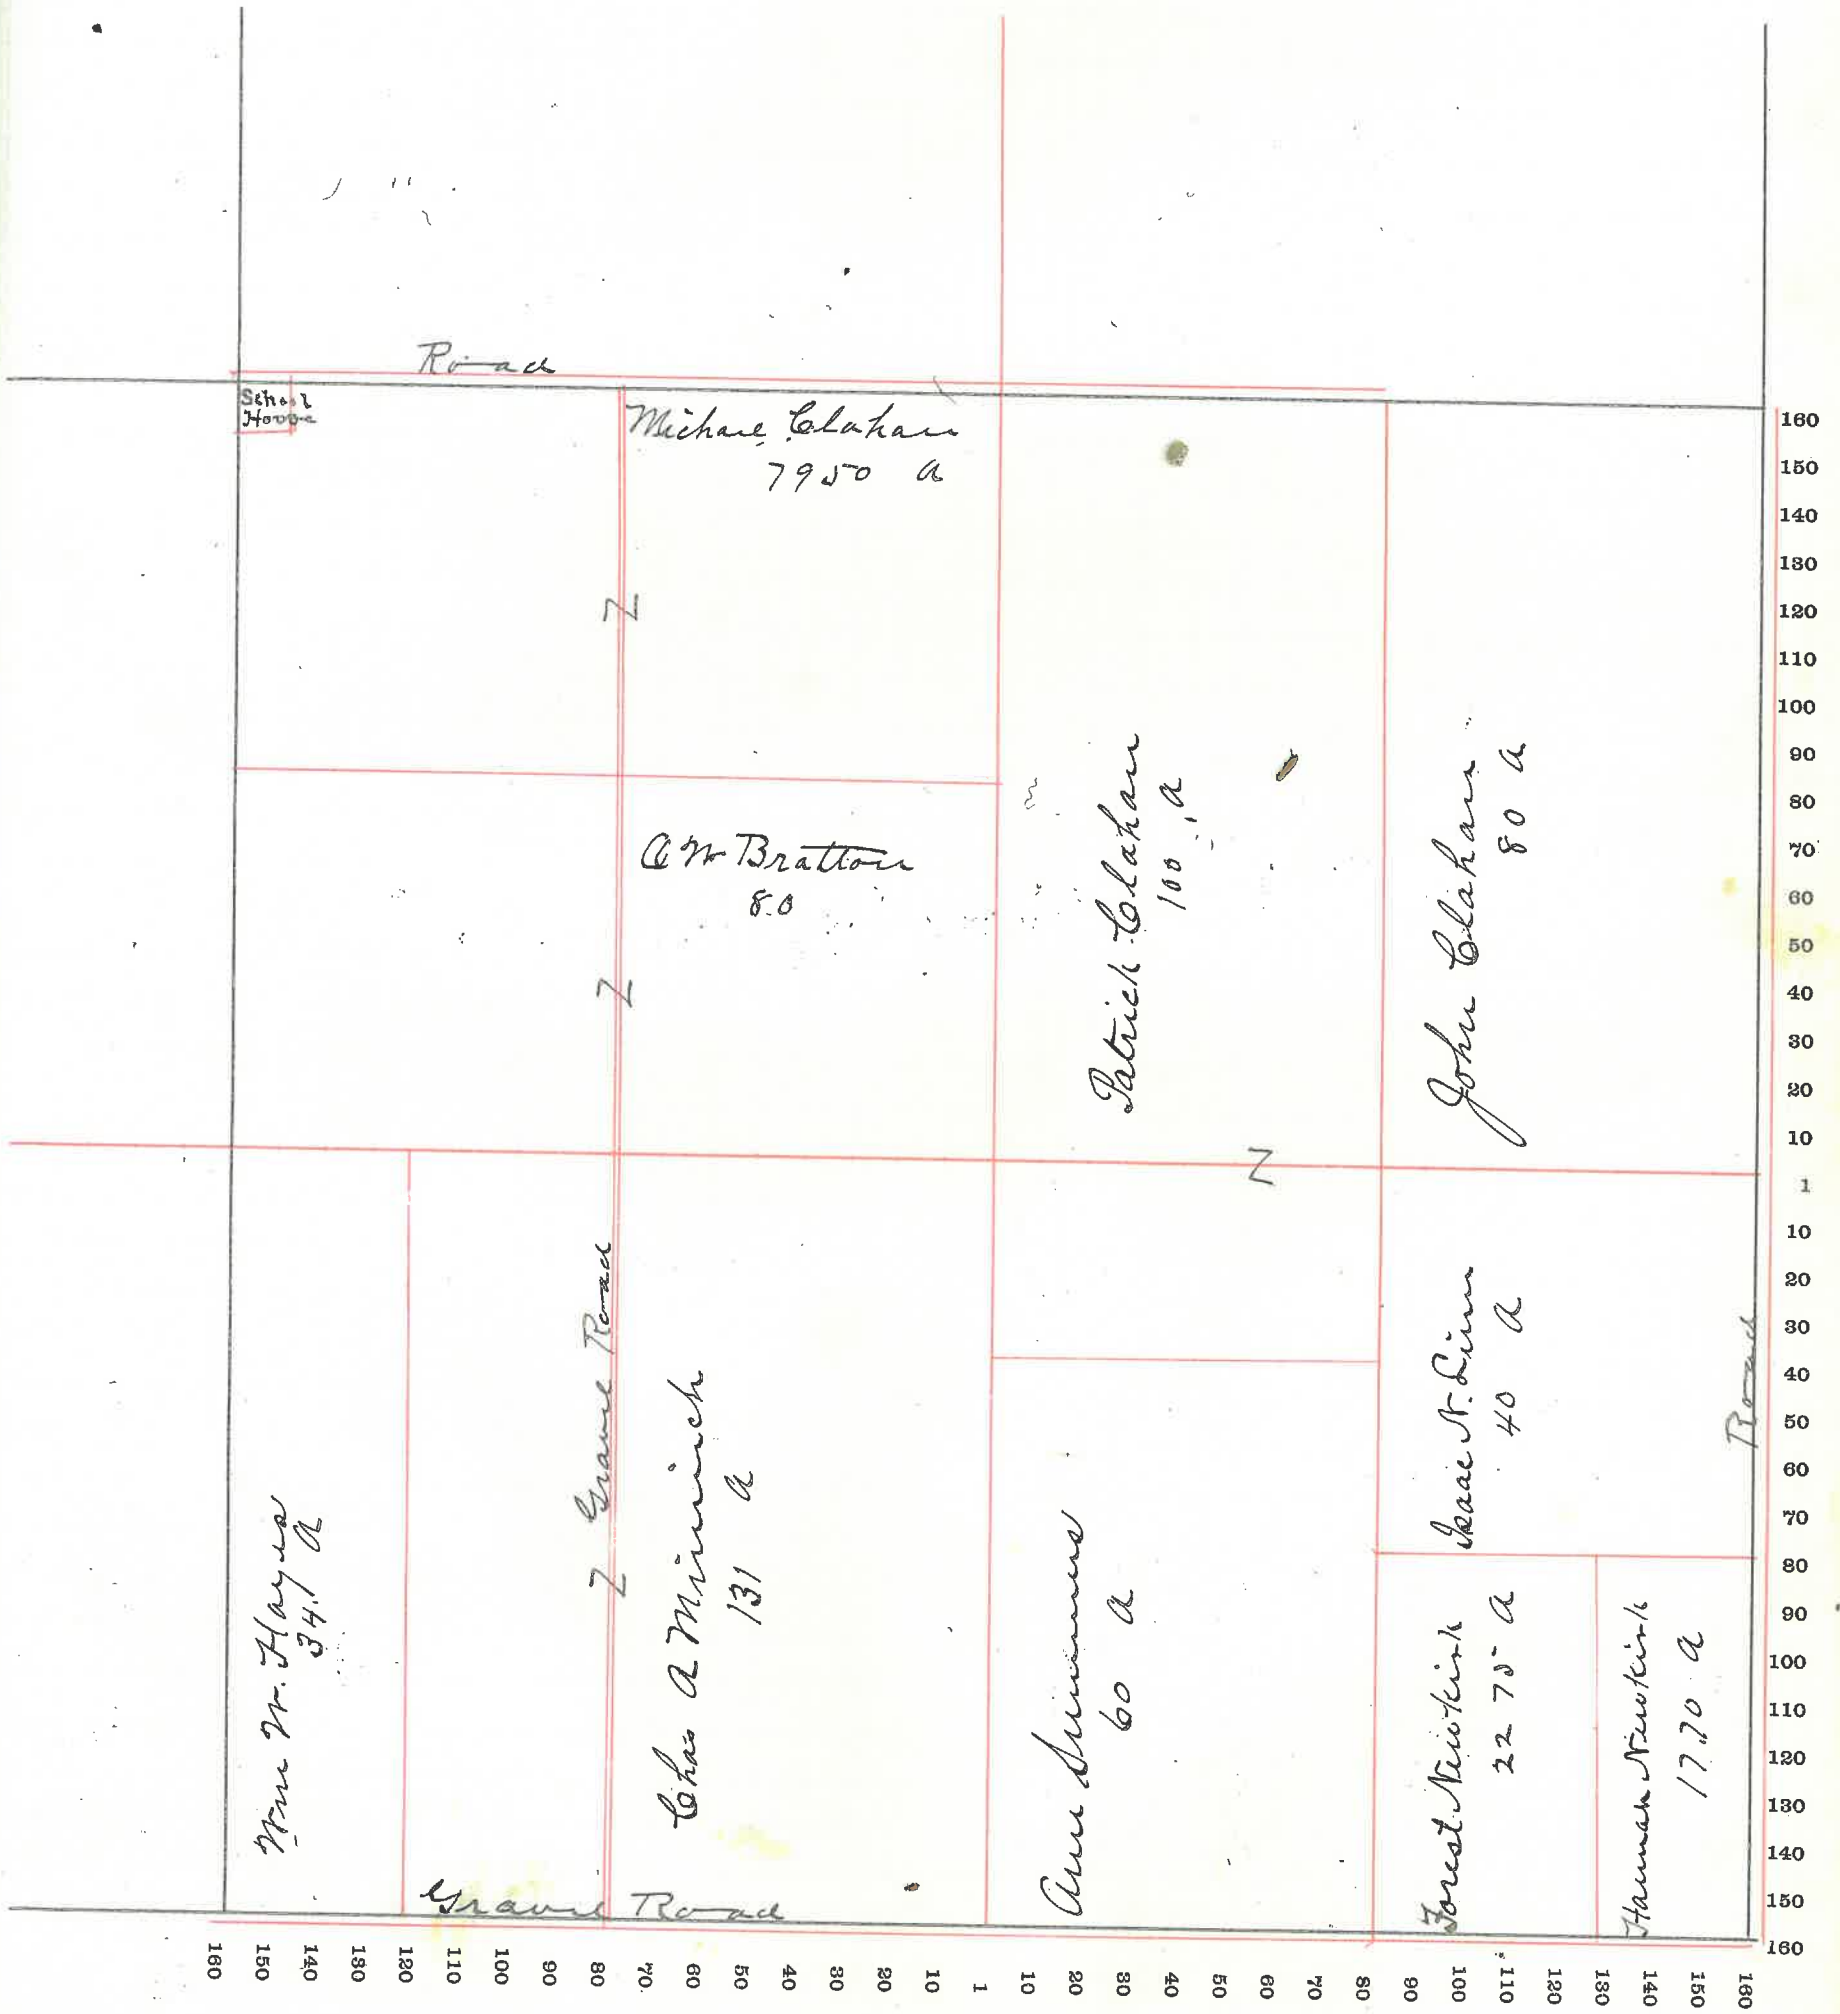 Road
School
House
Michael Clahan
79 50 a
A W Bratton
80
Patrick Clahan
100 a
John Clahan
80 a
Gravel Road
Wm W. Hayes
34 a
Chas A Minnich
131 a
Ann Simmons
60 a
Isaac N. Linn
40 a
Road
Forest Newkirk
22 75 a
Hannah Newkirk
17.70 a
Gravel Road
160
150
140
130
120
110
100
90
80
70
60
50
40
30
20
10
1
10
20
30
40
50
60
70
80
90
100
110
120
130
140
150
160
160
150
140
130
120
110
100
90
80
70
60
50
40
30
20
10
1
10
20
30
40
50
60
70
80
90
100
110
120
130
140
150
160